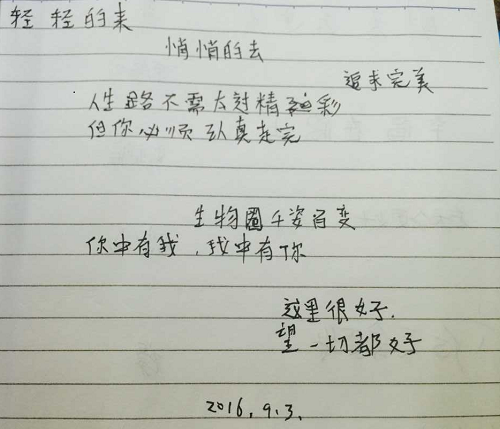 轻轻的来
悄悄的去
追求完美
人生路不需太过精彩
但你必须认真走完
生物圈千姿百变
你中有我,我中有你
这里很好.
望一切都好
2016.9.3.